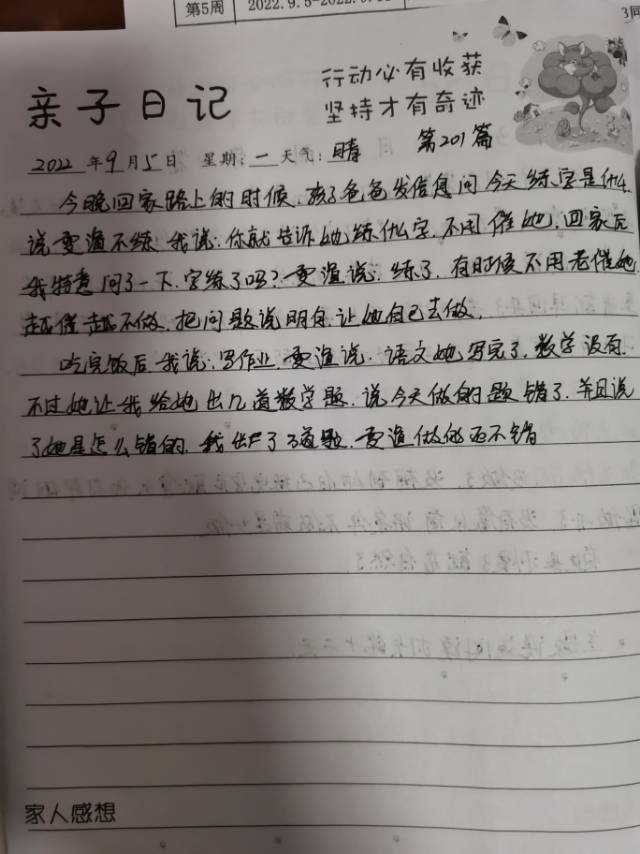 第5周 2022.9.5-2022.9.11
行动必有收获
亲子日记
坚持才有奇迹
第201篇
2022年9月5日 星期:一 天气:晴
今晚回家路上的时候.孩子爸爸发信息问今天练字是什么
说雯渲不练.我说:你就告诉她练什么字.不用催她.回家后
我特意问了一下.字练了吗?雯渲说:练了.有时候不用老催她
越催越不做.把问题说明白.让她自己去做.
吃完饭后我说:写作业.雯渲说.语文她写完了.数学没有.
不过她让我给她出几道数学题.说今天做的题错了.并且说
了她是怎么错的.我出了3道题.雯渲做的还不错
家人感想